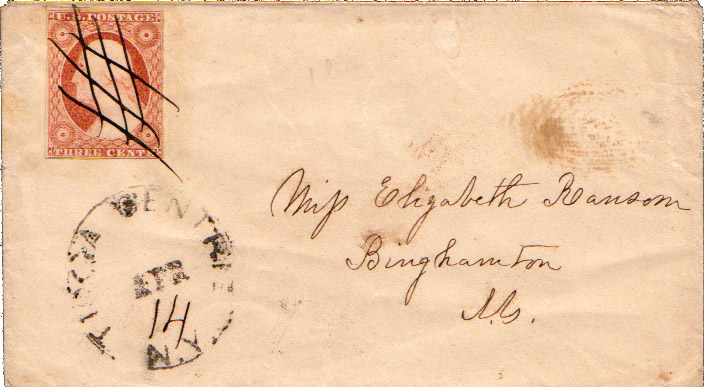 U.S. POSTAGE
THREE CENTS
TIOGA CENTRE N.Y
APR
14
Miss Elizabeth Ransom
Binghamton